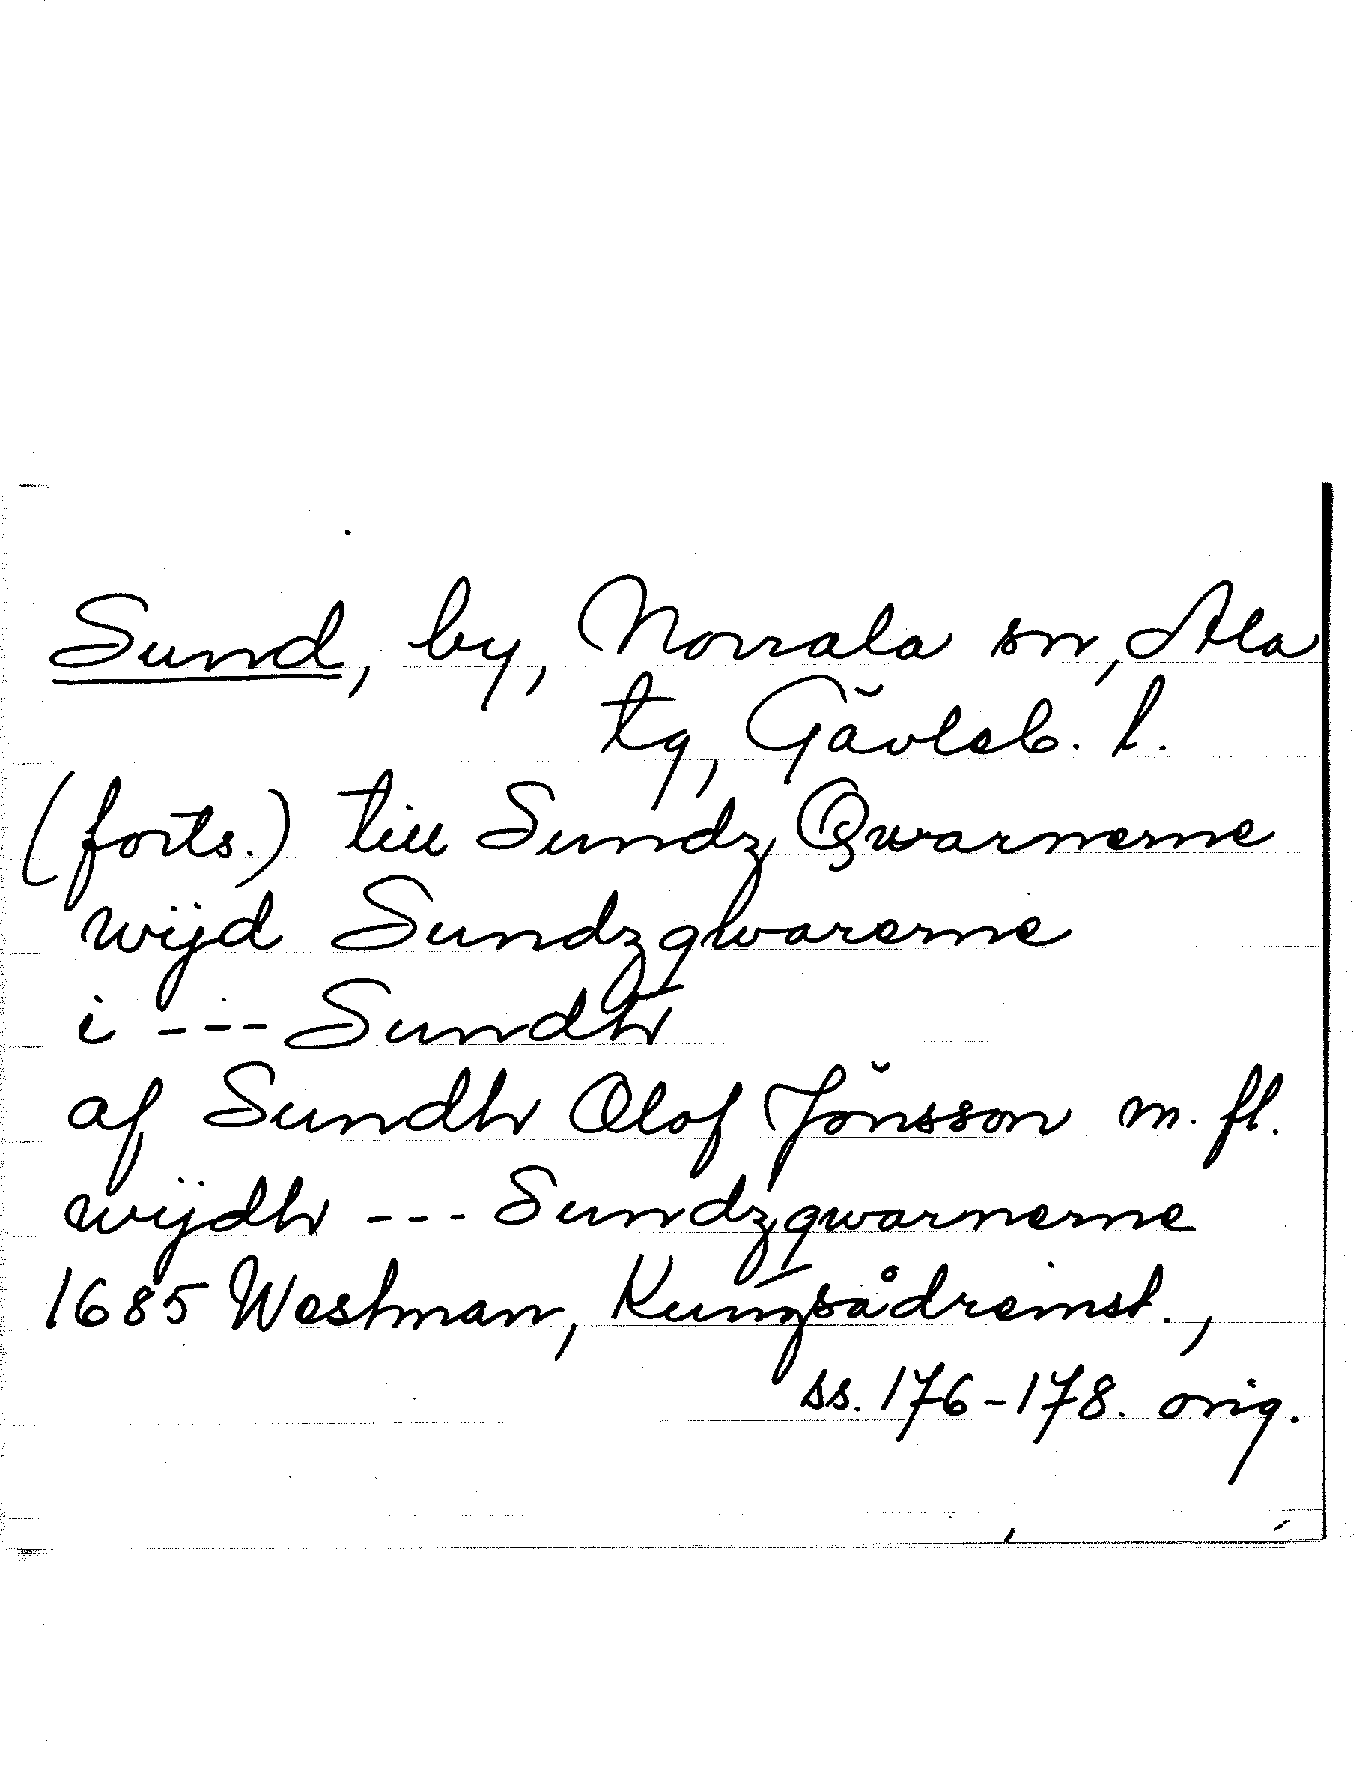 Sund, by, Norrala sn, Ala
tg, Gävleb. l.
(forts.) till Sundz Qwarnerne
wijd Sundzqwarerne
i --- Sundh
af Sundh Olof Jönsson m. fl.
wijdh --- Sundzqwarnerne
1685 Westman, Kungsådreinst.,
ss. 176-178. orig.